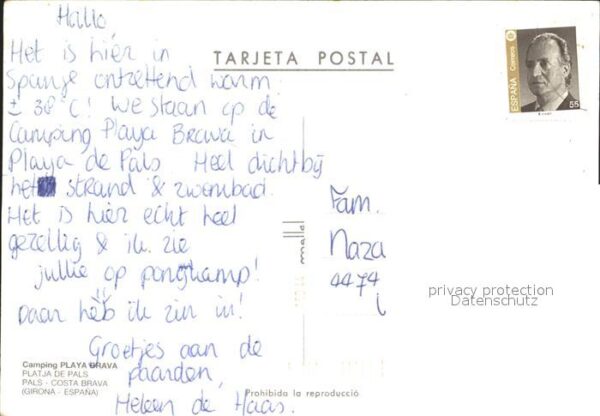 Hallo
Het is hier in
Spanje ontzettend warm.
± 38°C! We staan op de
Camping Playa Brava in
Playa de Pals Heel dichtbij
het strand & zwembad.
Het is hier echt heel
gezellig & ik zie
jullie op ponykamp!
Daar heb ik zin in!
Groetjes aan de
paarden,
Heleen de Haas.
TARJETA POSTAL
ESPAÑA
Correos
55
Fam.
Naza
4474
privacy protection
Datenschutz
Camping PLAYA BRAVA
PLATJA DE PALS
PALS - COSTA BRAVA
(GIRONA - ESPAÑA)
Prohibida la reproducció